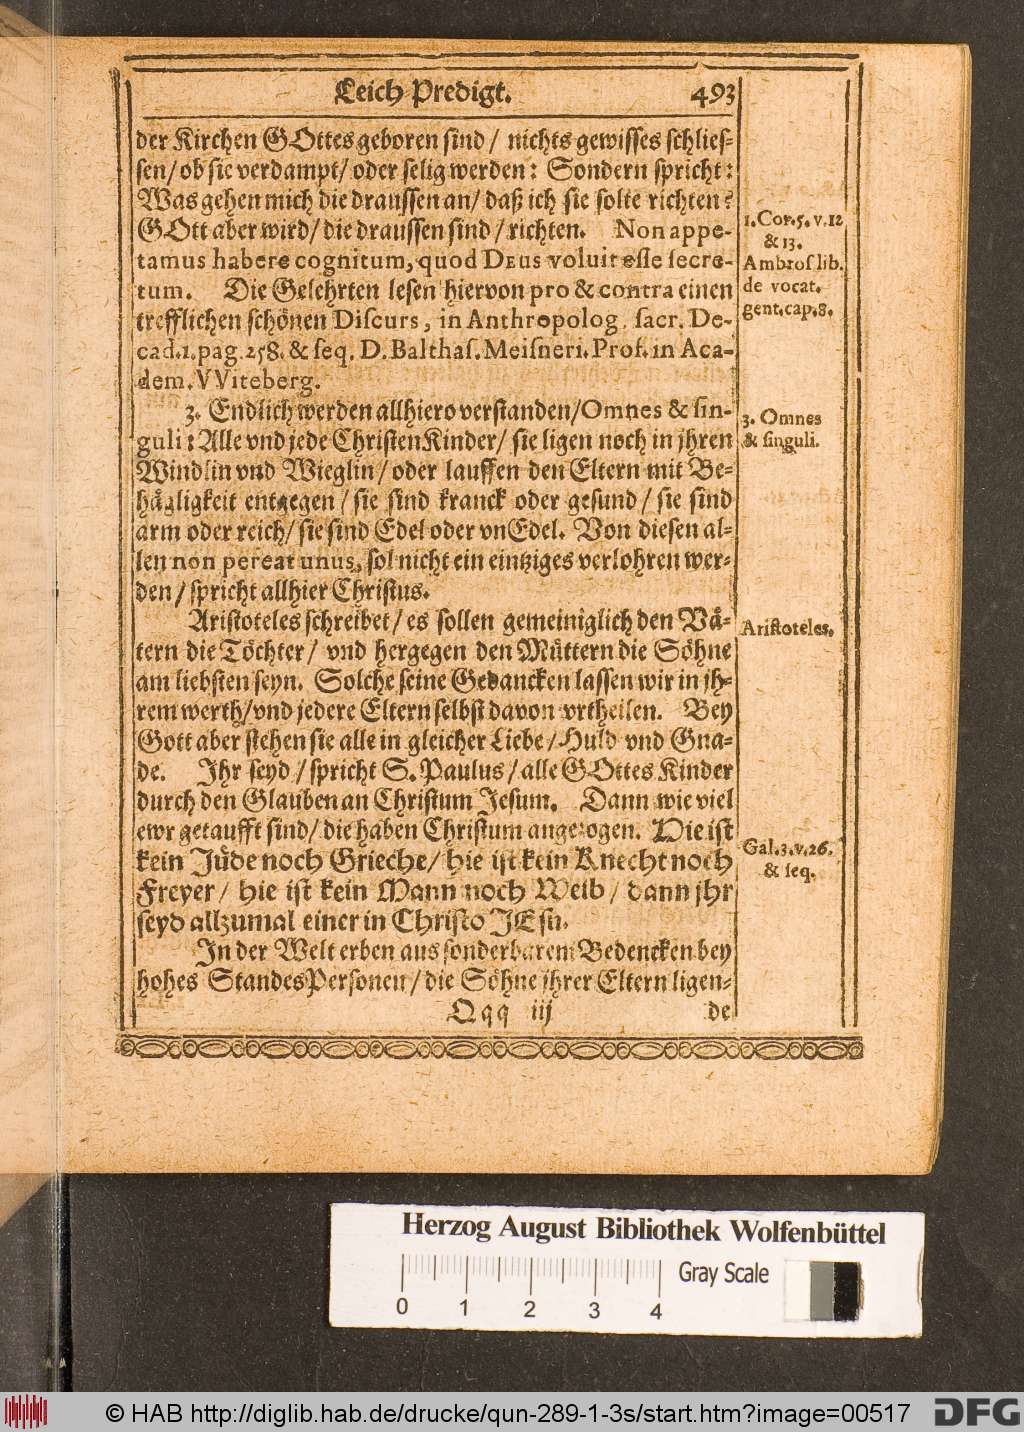 Leich Predigt. 493
der Kirchen GOttes geboren sind / nichts gewisses schlies-
sen / ob sie verdampt / oder selig werden: Sondern spricht:
Was gehen mich die draussen an / daß ich sie solte richten?
GOtt aber wird / die draussen sind / richten. Non appe-
tamus habere cognitum, quod DEUS voluit esse secre-
tum. Die Gelehrten lesen hiervon pro & contra einen
trefflichen schönen Discurs, in Anthropolog. sacr. De-
cad. 1. pag. 258. & seq. D. Balthas. Meisneri. Prof. in Aca-
dem. VViteberg.
3. Endlich werden allhiero verstanden / Omnes & sin-
guli: Alle vnd jede ChristenKinder / sie ligen noch in jhren
Windlin vnd Wieglin / oder lauffen den Eltern mit Be-
hägligkeit entgegen / sie sind kranck oder gesund / sie sind
arm oder reich / sie sind Edel oder vnEdel. Von diesen al-
len non pereat unus, sol nicht ein eintziges verlohren wer-
den / spricht allhier Christus.
Aristoteles schreibet / es sollen gemeiniglich den Vä-
tern die Töchter / vnd hergegen den Müttern die Söhne
am liebsten seyn. Solche seine Gedancken lassen wir in jh-
rem werth / vnd jedere Eltern selbst davon vrtheilen. Bey
Gott aber stehen sie alle in gleicher Liebe / Huld vnd Gna-
de. Ihr seyd / spricht S. Paulus / alle GOttes Kinder
durch den Glauben an Christum Jesum. Dann wie viel
ewr getaufft sind / die haben Christum angezogen. Hie ist
kein Jüde noch Grieche / hie ist kein Knecht noch
Freyer / hie ist kein Mann noch Weib / dann jhr
seyd allzumal einer in Christo JEsu.
In der Welt erben aus sonderbarem Bedencken bey
hohes StandesPersonen / die Söhne jhrer Eltern ligen-
Qqq iij de
1. Cor. 5. v. 12
& 13.
Ambros lib.
de vocat.
gent. cap. 8.
3. Omnes
& singuli.
Aristoteles.
Gal. 3. v. 26.
& seq.
Herzog August Bibliothek Wolfenbüttel
0 1 2 3 4 Gray Scale
© HAB http://diglib.hab.de/drucke/qun-289-1-3s/start.htm?image=00517 DFG